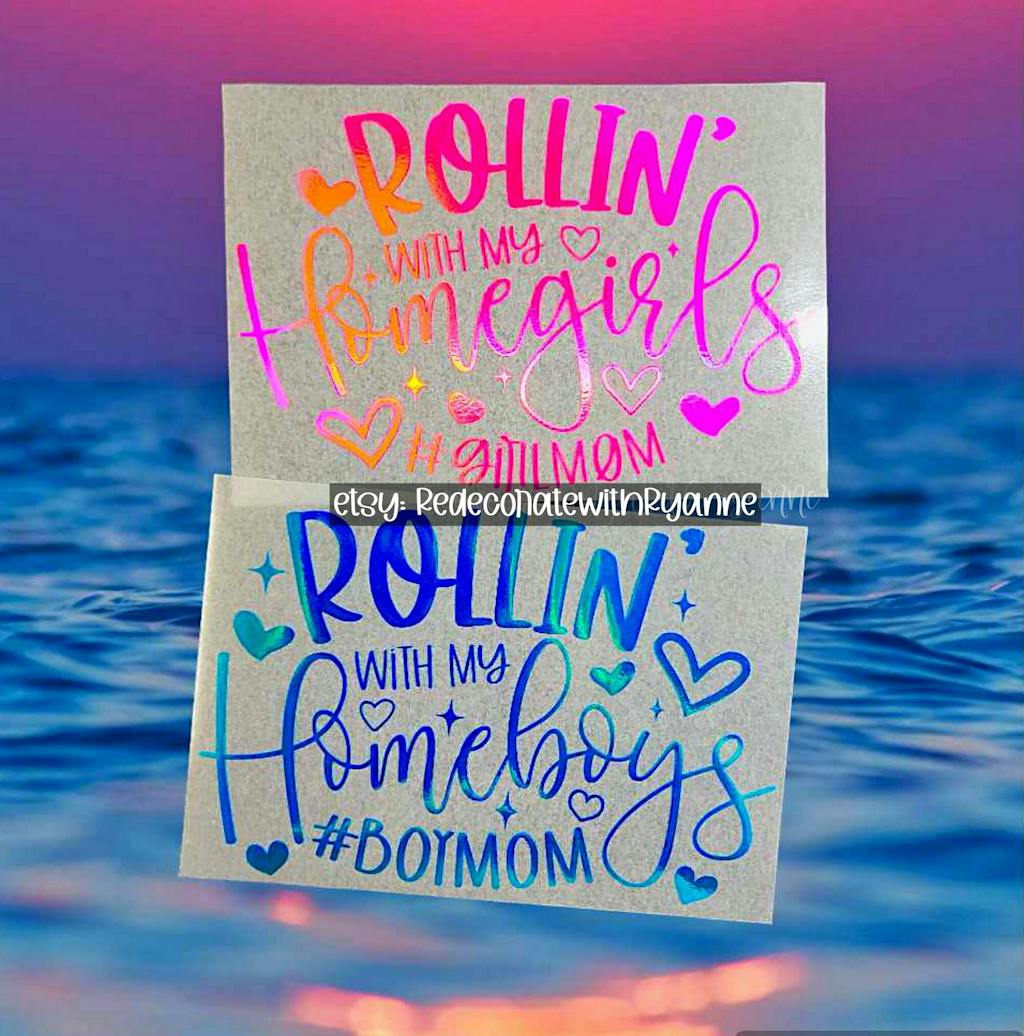 ROLLIN'
WITH MY
Homegirls
#GIRLMOM
etsy: RedecorateWithRyanne
ROLLIN'
WITH MY
Homeboys
#BOYMOM